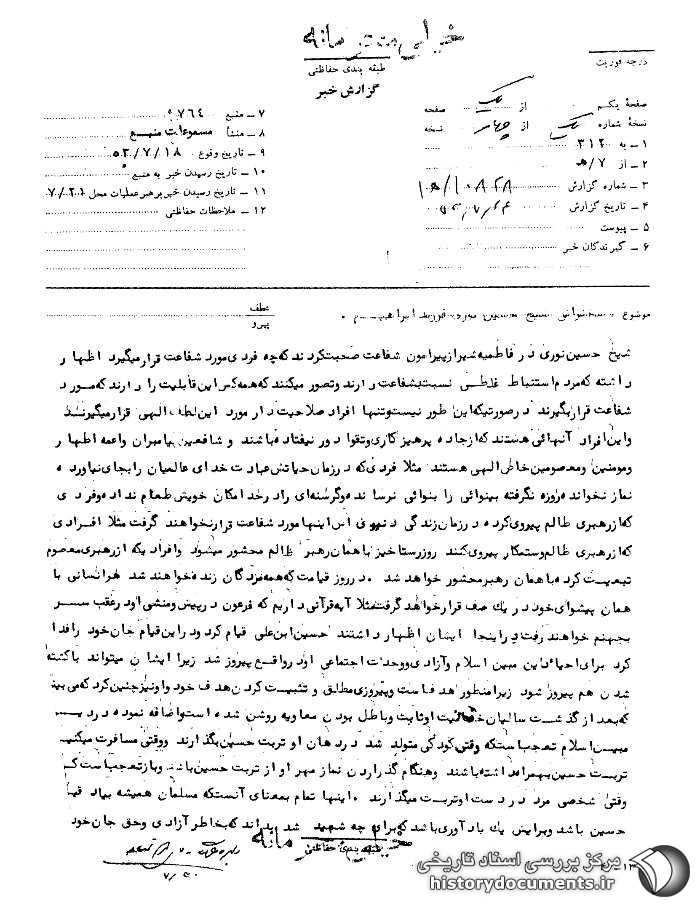 خیلی محرمانه
طبقه بندی حفاظتی
گزارش خبر
درجه فوریت
صفحهٔ یکم از یک صفحه
نسخهٔ شماره یک از چهار نسخه
۱ – به ۳۱۲
۲ – از ۷/ه
۳ – شماره گزارش ۱۰۸۲۸/ه
۴ – تاریخ گزارش
۵ – پیوست
۶ – گیرندگان خبر
۷ – منبع ۹۷۶۴
۸ – منشأ مسموعات منبع
۹ – تاریخ وقوع ۵۳/۷/۱۸
۱۰ – تاریخ رسیدن خبر به منبع
۱۱ – تاریخ رسیدن خبر برهبر عملیات محل ۷/۲۰
۱۲ – ملاحظات حفاظتی
موضوع : سخنرانی شیخ حسین نوری فرزند ابراهیم .
عطف
پیرو
شیخ حسین نوری در فاطمیه شیراز پیرامون شفاعت صحبت کردند که چه فردی مورد شفاعت قرار میگیرد اظهار
داشته که مردم استنباط غلطی نسبت بشفاعت دارند و تصور میکنند که همه کس این قابلیت را دارند که مورد
شفاعت قرار بگیرند در صورتیکه این طور نیست و تنها افراد صلاحیت دار مورد این لطف الهی قرار میگیرند
و این افراد آنهائی هستند که از جاده پرهیزکاری و تقوا دور نیفتاده باشند و شافعین پیامبران و ائمه اطهار
و مومنین و معصومین خاص الهی هستند مثلا فردی که در زمان حیاتش عبادت خدای عالمیان را بجای نیاورده
نماز نخوانده و روزه نگرفته بینوائی را بنوائی نرسانده و گرسنه‌ای را در حد امکان خویش طعام نداده و فردی
که از رهبری ظالم پیروی کرده در زمان زندگی دنیوی اش اینها مورد شفاعت قرار نخواهند گرفت مثلا افرادی
که از رهبری ظالم و ستمکار پیروی کنند روز رستاخیز با همان رهبر ظالم محشور میشود و افرادیکه از رهبری معصوم
تبعیت کرده با همان رهبر محشور خواهد شد . در روز قیامت که همه مردگان زنده خواهند شد هر انسانی با
همان پیشوای خود در یک صف قرار خواهد گرفت مثلا آیه قرآنی داریم که فرعون در پیش و منشی او در عقب سر
بجهنم خواهند رفت و در اینجا ایشان اظهار داشتند حسین ابن علی قیام کرد و در این قیام جان خود را فدا
کرد برای احیاء دین مبین اسلام و آزادی و وحدت اجتماعی او در واقع پیروز شد زیرا ایشان میتواند با کشته
شدن هم پیروز شود زیرا منظور هدف است و پیروزی مطلق و تثبیت کردن هدف خود و او نیز چنین کرد که می بینیم
که بعد از گذشت سالیان حقانیت او ثابت و باطل بودن معاویه روشن شده است و اضافه نموده در دین
مبین اسلام تعجب است که وقتی کودکی متولد شد در دهان او تربت حسین بگذارند و وقتی مسافرت میکنید
تربت حسین بهمراه داشته باشند و هنگام گذاردن نماز مهر او از تربت حسین باشد و باز تعجب است که
وقتی شخصی مرد در دست او تربت میگذارند . اینها تمام بمعنای آنستکه مسلمان همیشه بیاد قیام
حسین باشد و برایش یک یادآوری باشد که برای چه شهید شد بداند که بخاطر آزادی و حق جان خود
طبقه بندی حفاظتی
خیلی محرمانه
۷/۳۰
مرکز بررسی اسناد تاریخی
historydocuments.ir